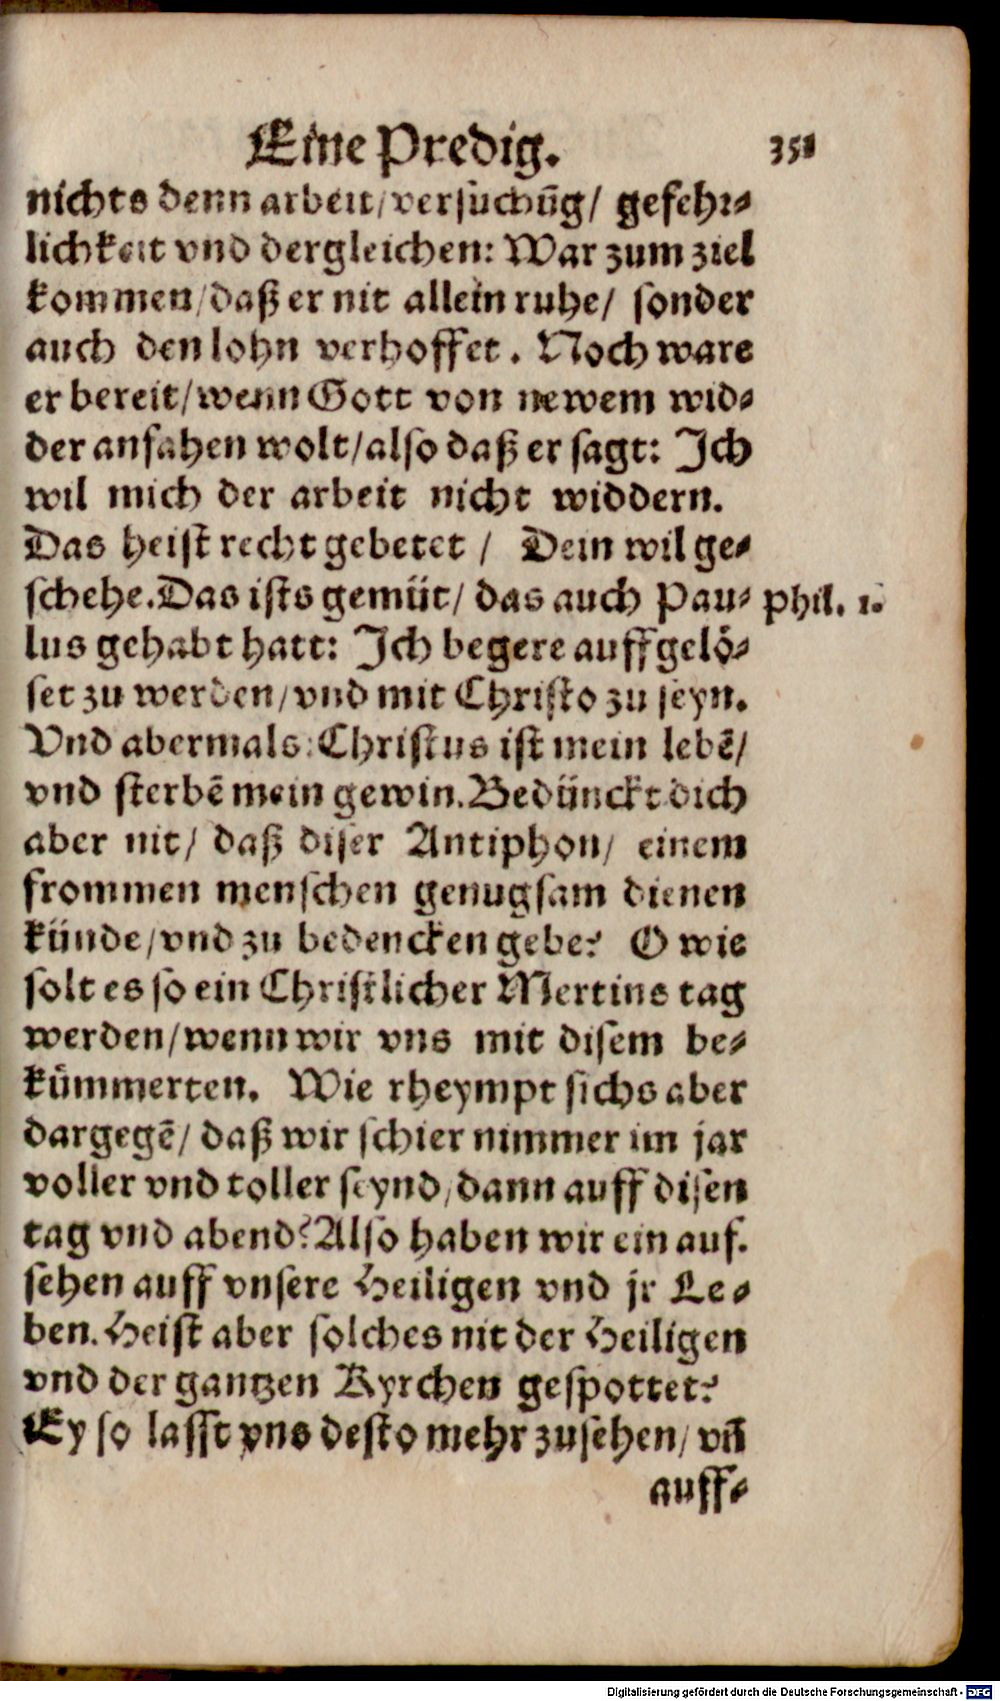 Eine Predig. 351
nichts denn arbeit/versuchūg/ gefehr⸗
lichkeit vnd dergleichen: War zum ziel
kommen/daß er nit allein ruhe/ sonder
auch den lohn verhoffet. Noch ware
er bereit/wenn Gott von newem wid⸗
der anfahen wolt/also daß er sagt: Ich
wil mich der arbeit nicht widdern.
Das heist recht gebetet / Dein wil ge⸗
schehe. Das ists gemüt/ das auch Pau⸗ Phil. 1.
lus gehabt hatt: Ich begere auffgelö⸗
set zu werden/vnd mit Christo zu seyn.
Vnd abermals: Christus ist mein lebē/
vnd sterbē mein gewin. Bedünckt dich
aber nit/ daß diser Antiphon/ einem
frommen menschen genugsam dienen
künde/vnd zu bedencken gebe? O wie
solt es so ein Christlicher Mertins tag
werden/wenn wir vns mit disem be⸗
kümmerten. Wie rheympt sichs aber
dargegē/ daß wir schier nimmer im jar
voller vnd toller seynd/dann auff disen
tag vnd abend? Also haben wir ein auf.
sehen auff vnsere Heiligen vnd jr Le⸗
ben. Heist aber solches nit der Heiligen
vnd der gantzen Kyrchen gespottet?
Ey so lasst vns desto mehr zusehen/ vñ
auff⸗
Digitalisierung gefördert durch die Deutsche Forschungsgemeinschaft - DFG